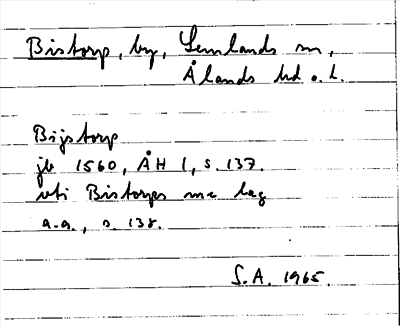 Bistorp, by, Lemlands sn,
Ålands hd o. l.
Bijstorp
jb 1560, ÅH 1, s. 137.
uti Bistorps me beg
a.a., s. 138.
S.A. 1965.